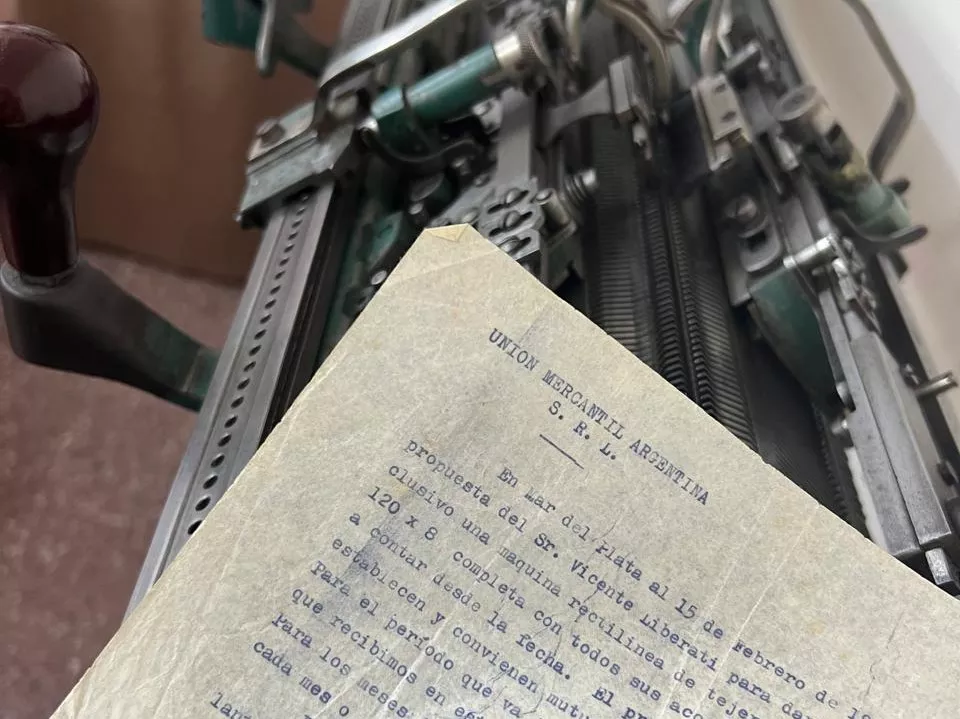 UNION MERCANTIL ARGENTINA
S. R. L.
En Mar del Plata al 15 de Febrero de 19
propuesta del Sr. Vicente Liberati para da
clusivo una maquina rectilinea de tejer
120 x 8 completa con todos sus acc
a contar desde la fecha. El pr
establecen y convienen mutu
Para el período que va
que recibimos en es
Para los meses
cada mes o
lan